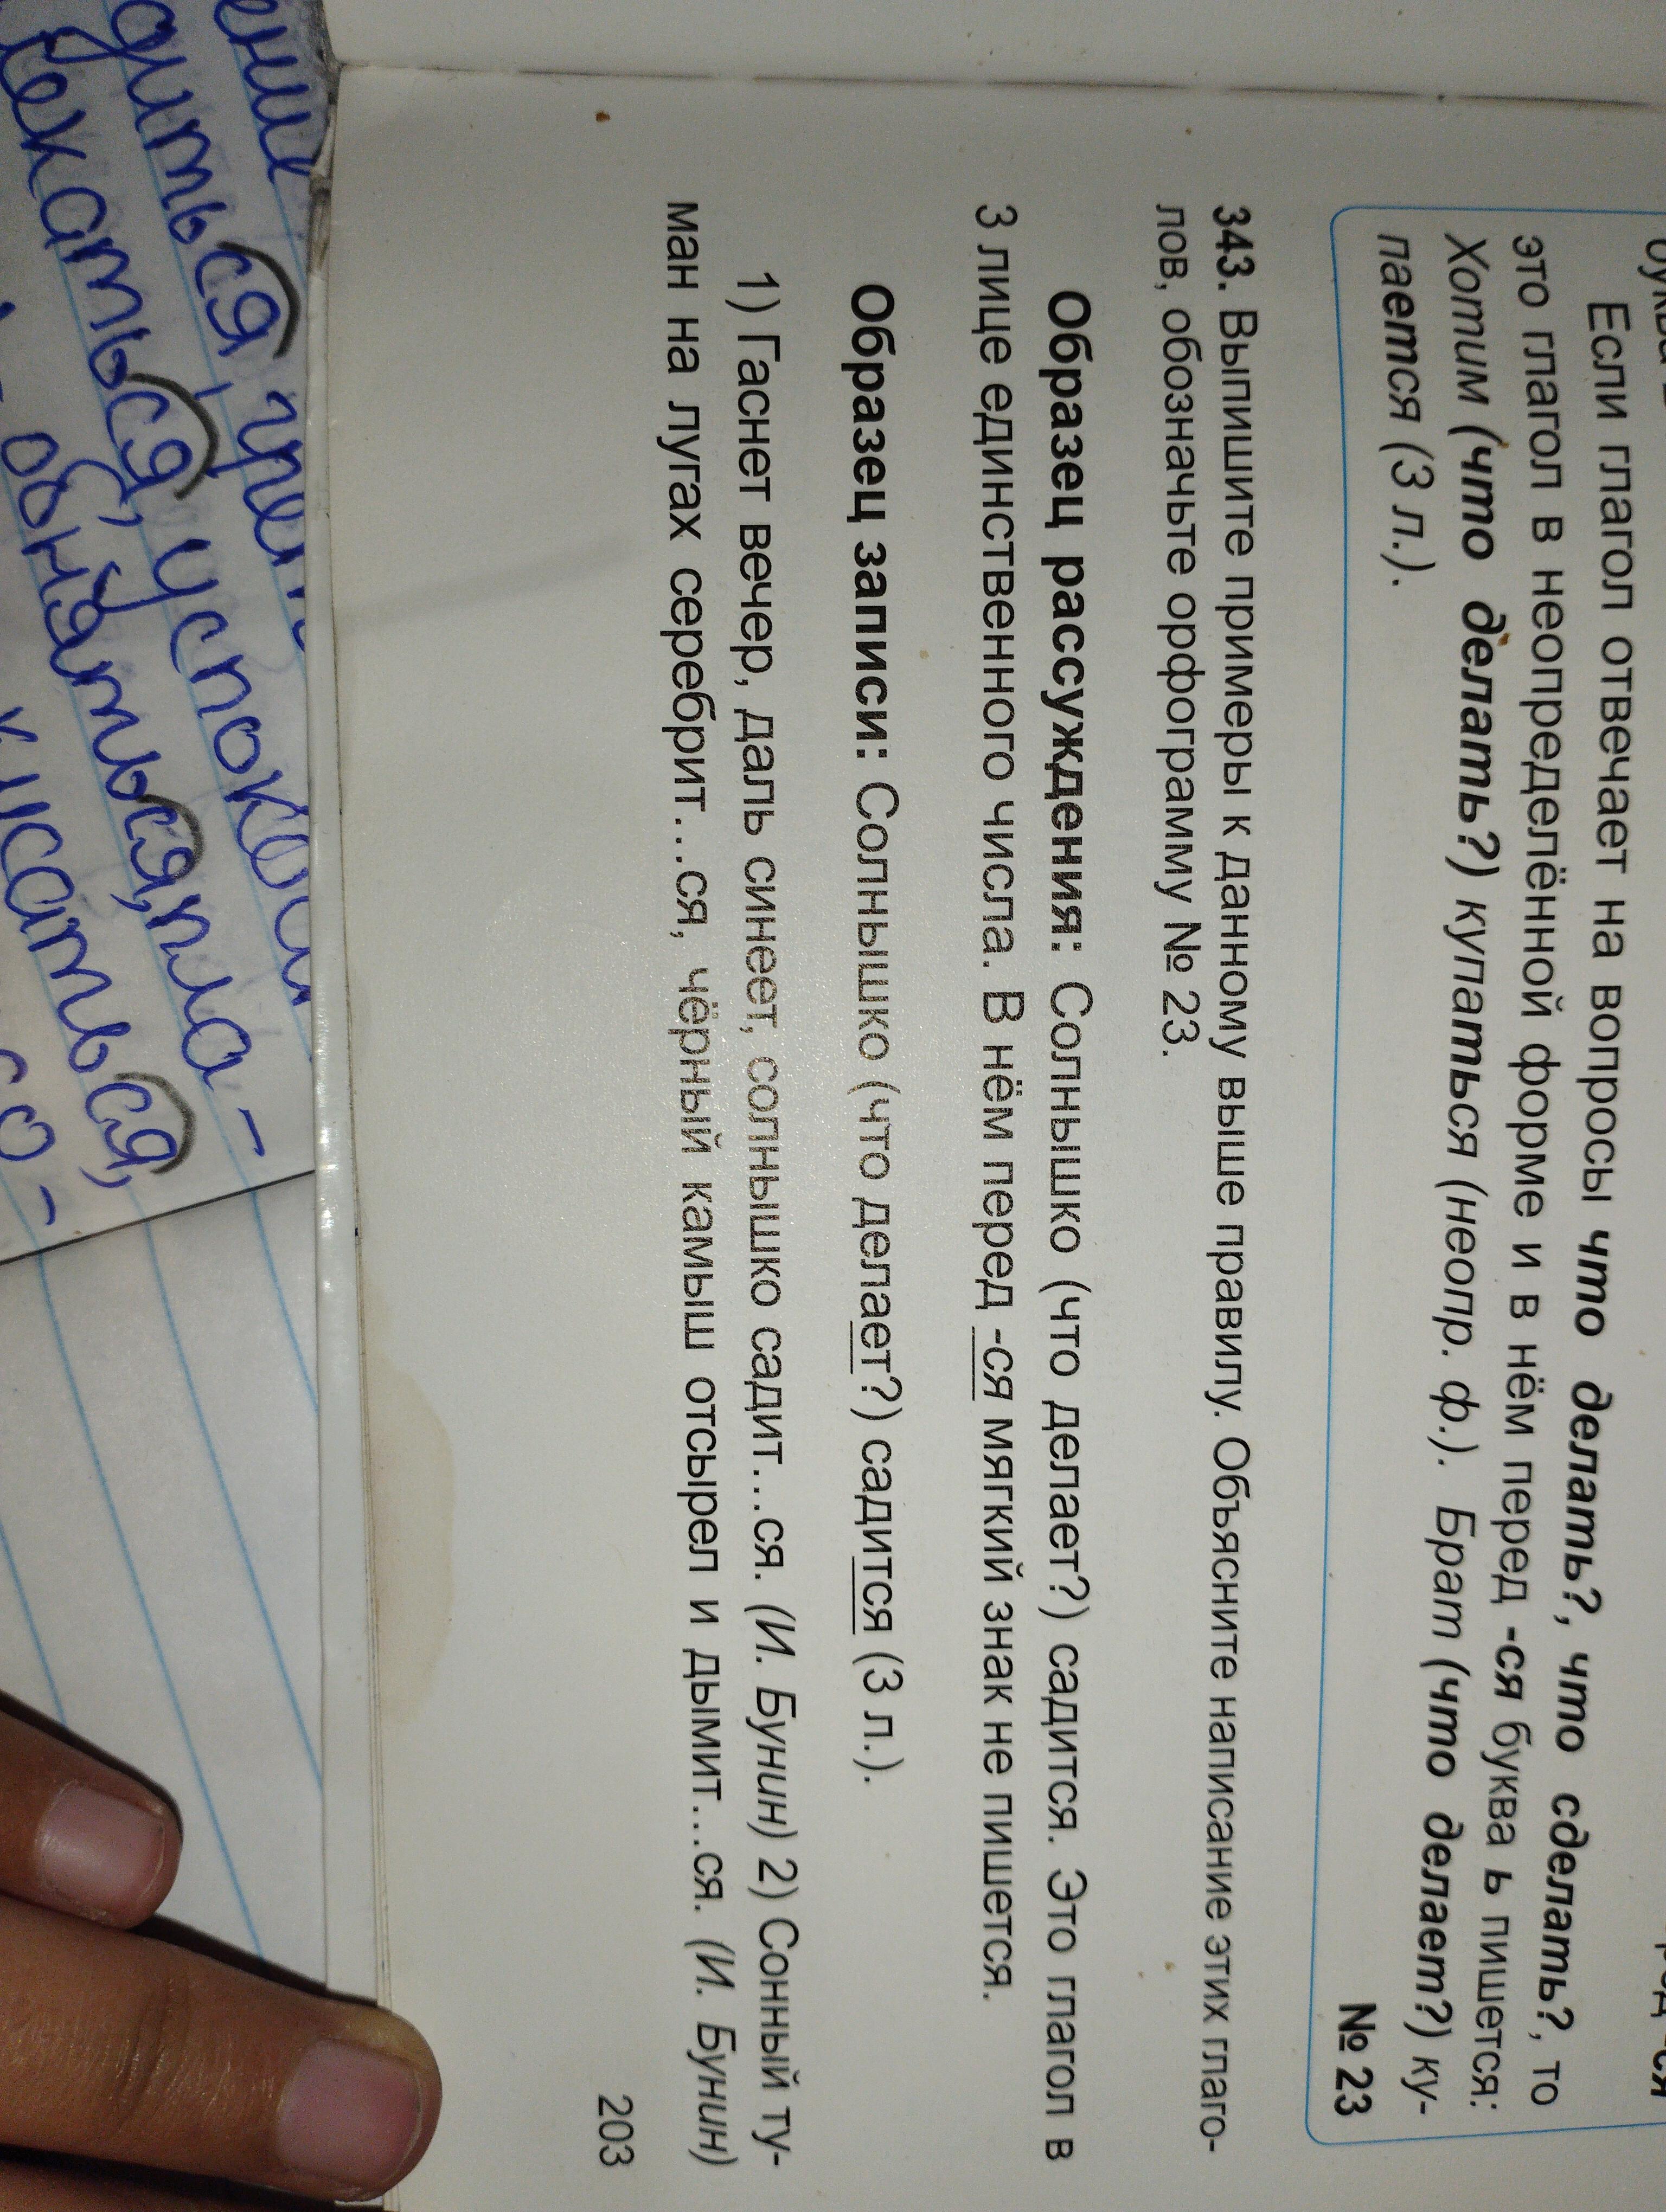 Если глагол отвечает на вопросы что делать?, что сделать?, то
это глагол в неопределённой форме и в нём перед -ся буква ь пишется:
Хотим (что делать?) купаться (неопр. ф.). Брат (что делает?) ку-
пается (3 л.).
№ 23
343. Выпишите примеры к данному выше правилу. Объясните написание этих глаго-
лов, обозначьте орфограмму № 23.
Образец рассуждения: Солнышко (что делает?) садится. Это глагол в
3 лице единственного числа. В нём перед -ся мягкий знак не пишется.
Образец записи: Солнышко (что делает?) садится (3 л.).
1) Гаснет вечер, даль синеет, солнышко садит...ся. (И. Бунин) 2) Сонный ту-
ман на лугах серебрит...ся, чёрный камыш отсырел и дымит...ся. (И. Бунин)
203
обняться, пла-